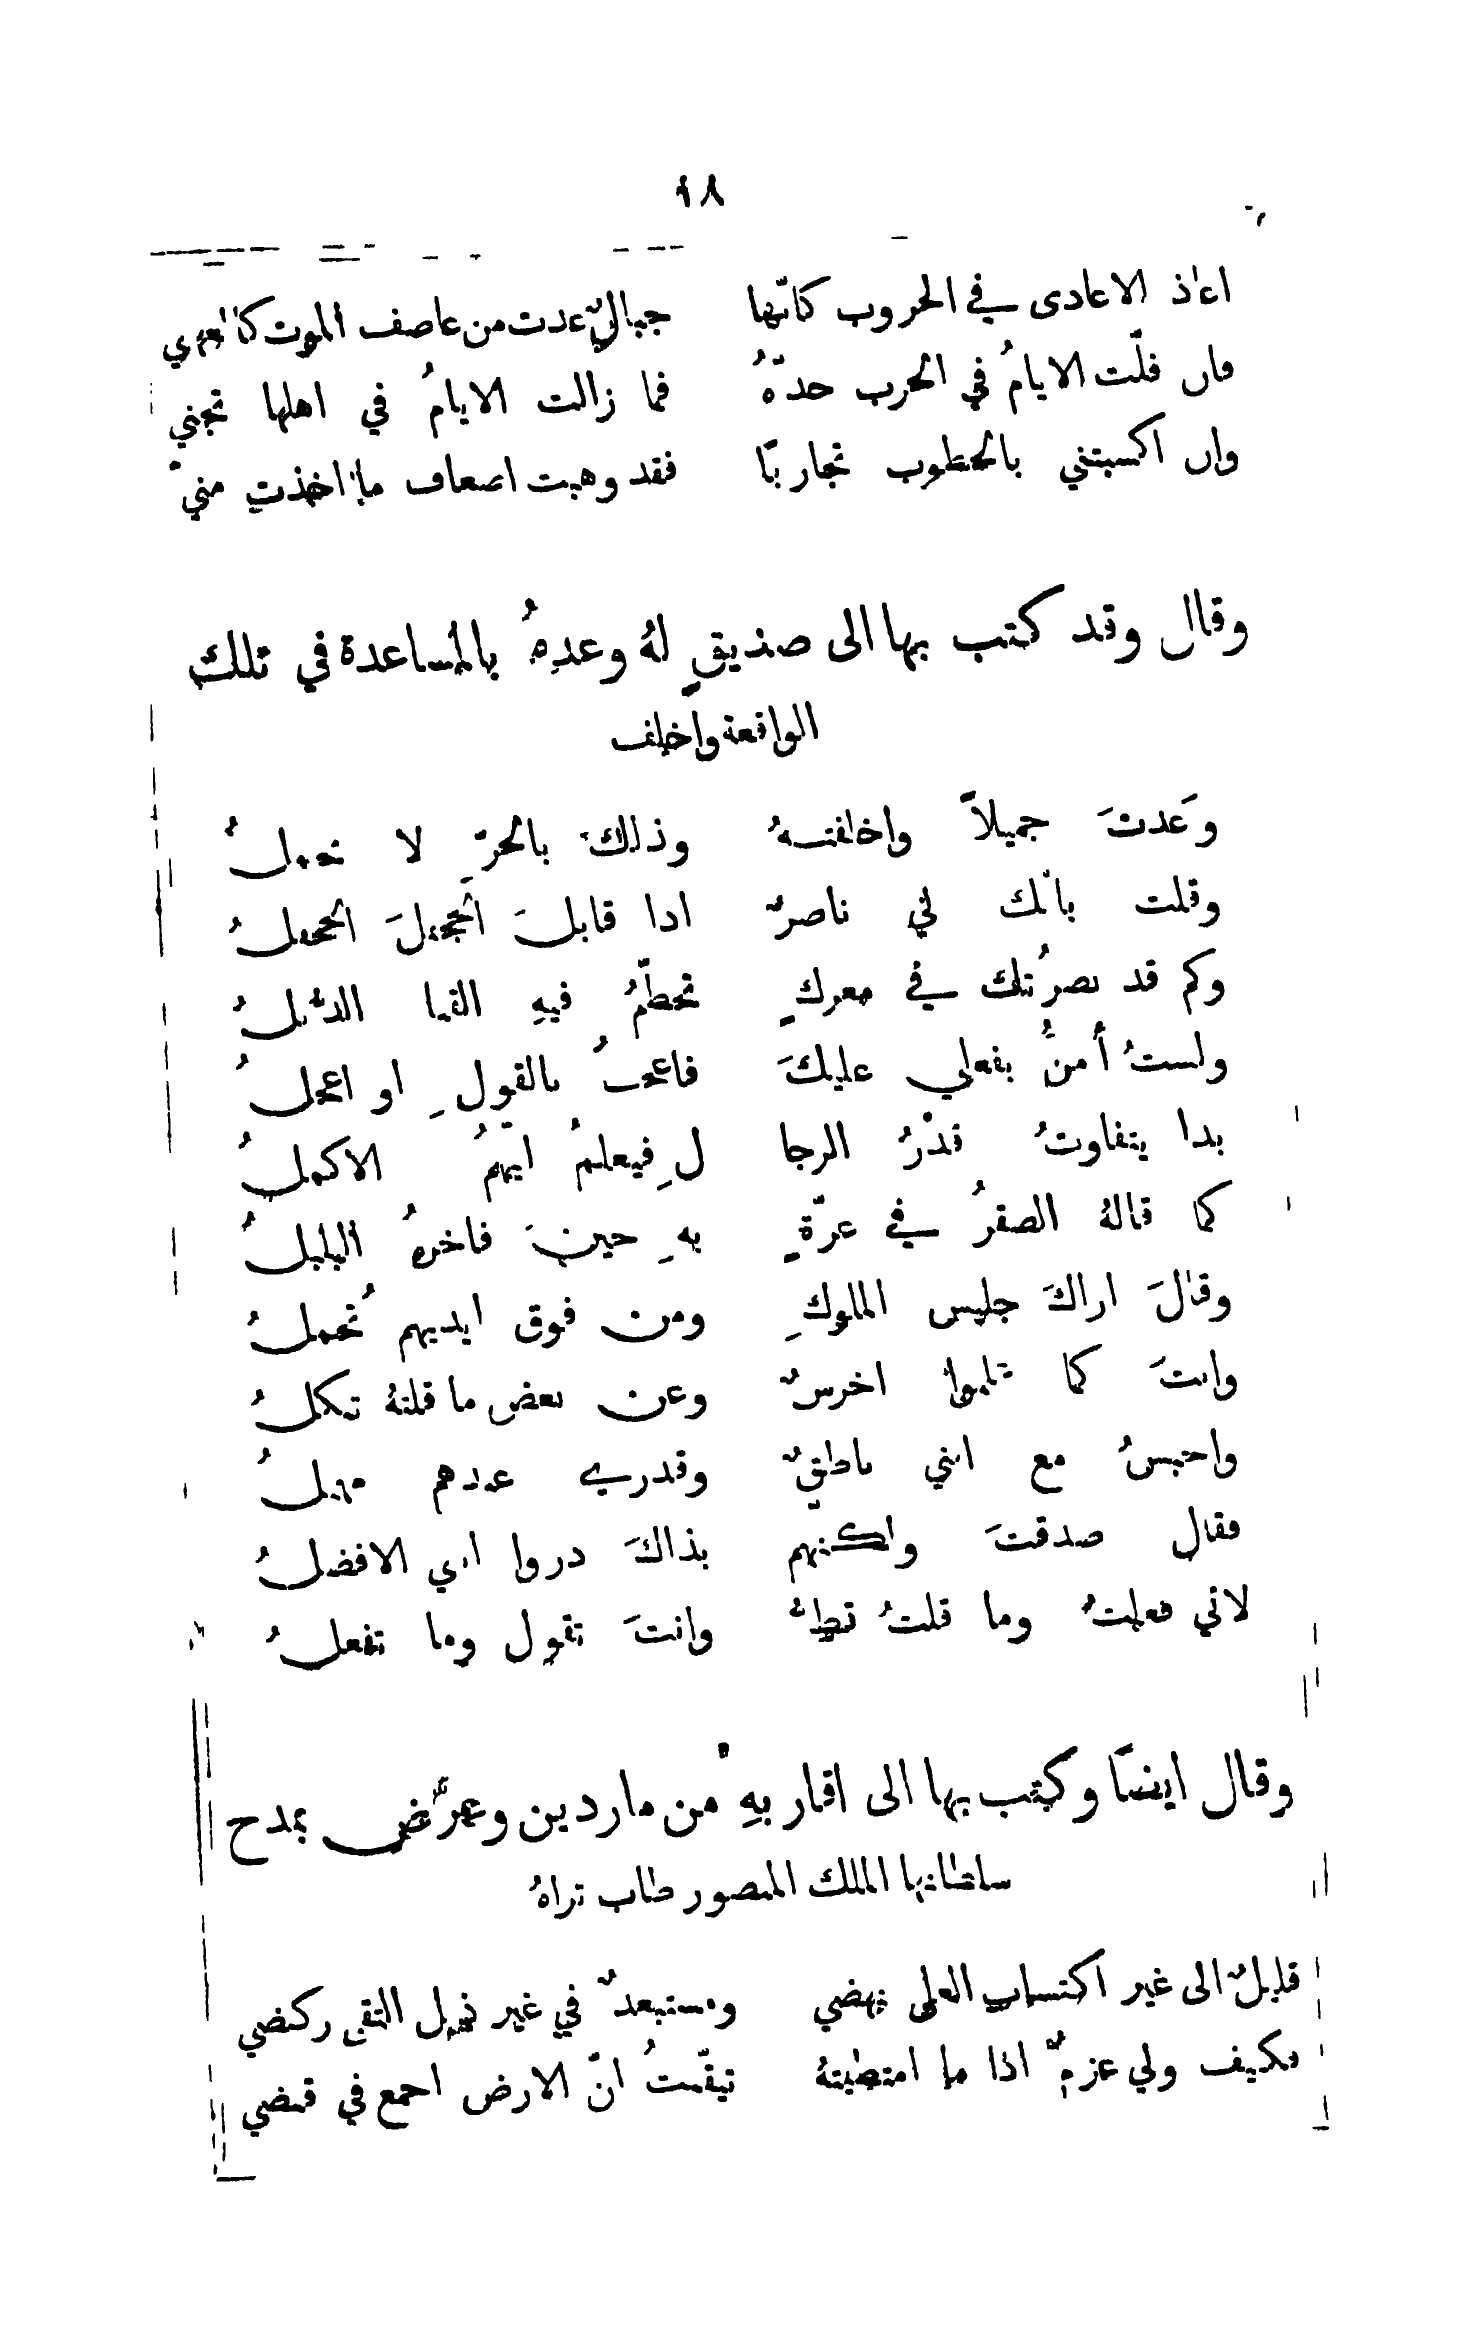 ١٨
اعاذ الاعادى في الحروب كانّها جبالٌ عدت من عاصف الموت
فان فلّت الايامُ في الحرب حدّهُ فما زالت الايامُ في اهلها تجني
وان اكسبتني بالخطوب تجاربًا فقد وهبت اضعاف ما اخذت منيّ
وقال وقد كتب بها الى صديقٍ لهُ وعدهُ بالمساعدة في تلك
الواقعة واخلف
وعَدتَ جميلاً واخلفتهُ وذلك بالحرّ لا يجملُ
وقلت بانك لي ناصرٌ اذا قابلَ الجحفلَ الجحفلُ
وكم قد نصرتُك في معركٍ تحطّمُ فيهِ القنا الذبّلُ
ولستُ أمنُّ بفعلي عليكَ فاعجبُ بالقولِ او اعجلُ
بدا يتفاوتُ قدْرُ الرجا لِ فيعلمُ ايّهمُ الاكملُ
كما قالهُ الصقرُ في عزّةٍ بهِ حينَ فاخرهُ البلبلُ
وقالَ اراكَ جليس الملوكِ ومن فوق ايديهم تُحملُ
وانتَ كما علموا اخرسٌ وعن بعض ما قلتهُ تنكلُ
واحبسُ مع انني ناطقٌ وقدري عندهم مهملُ
فقال صدقتَ ولكنهم بذاكَ دروا اني الافضلُ
لاني فعلتُ وما قلتُ قطّ وانتَ تقول وما تفعلُ
وقال ايضًا وكتب بها الى اقاربهِ من ماردين وعرَّض بمدح
سلطانها الملك المنصور طاب ثراهُ
قليلٌ الى غير اكتساب العلى نهضي ومستبعدٌ في غير نيل التقى ركضي
فكيف ولي عزمٌ اذا ما امتطيتهُ تيقّنتُ انّ الارض اجمع في قبضي